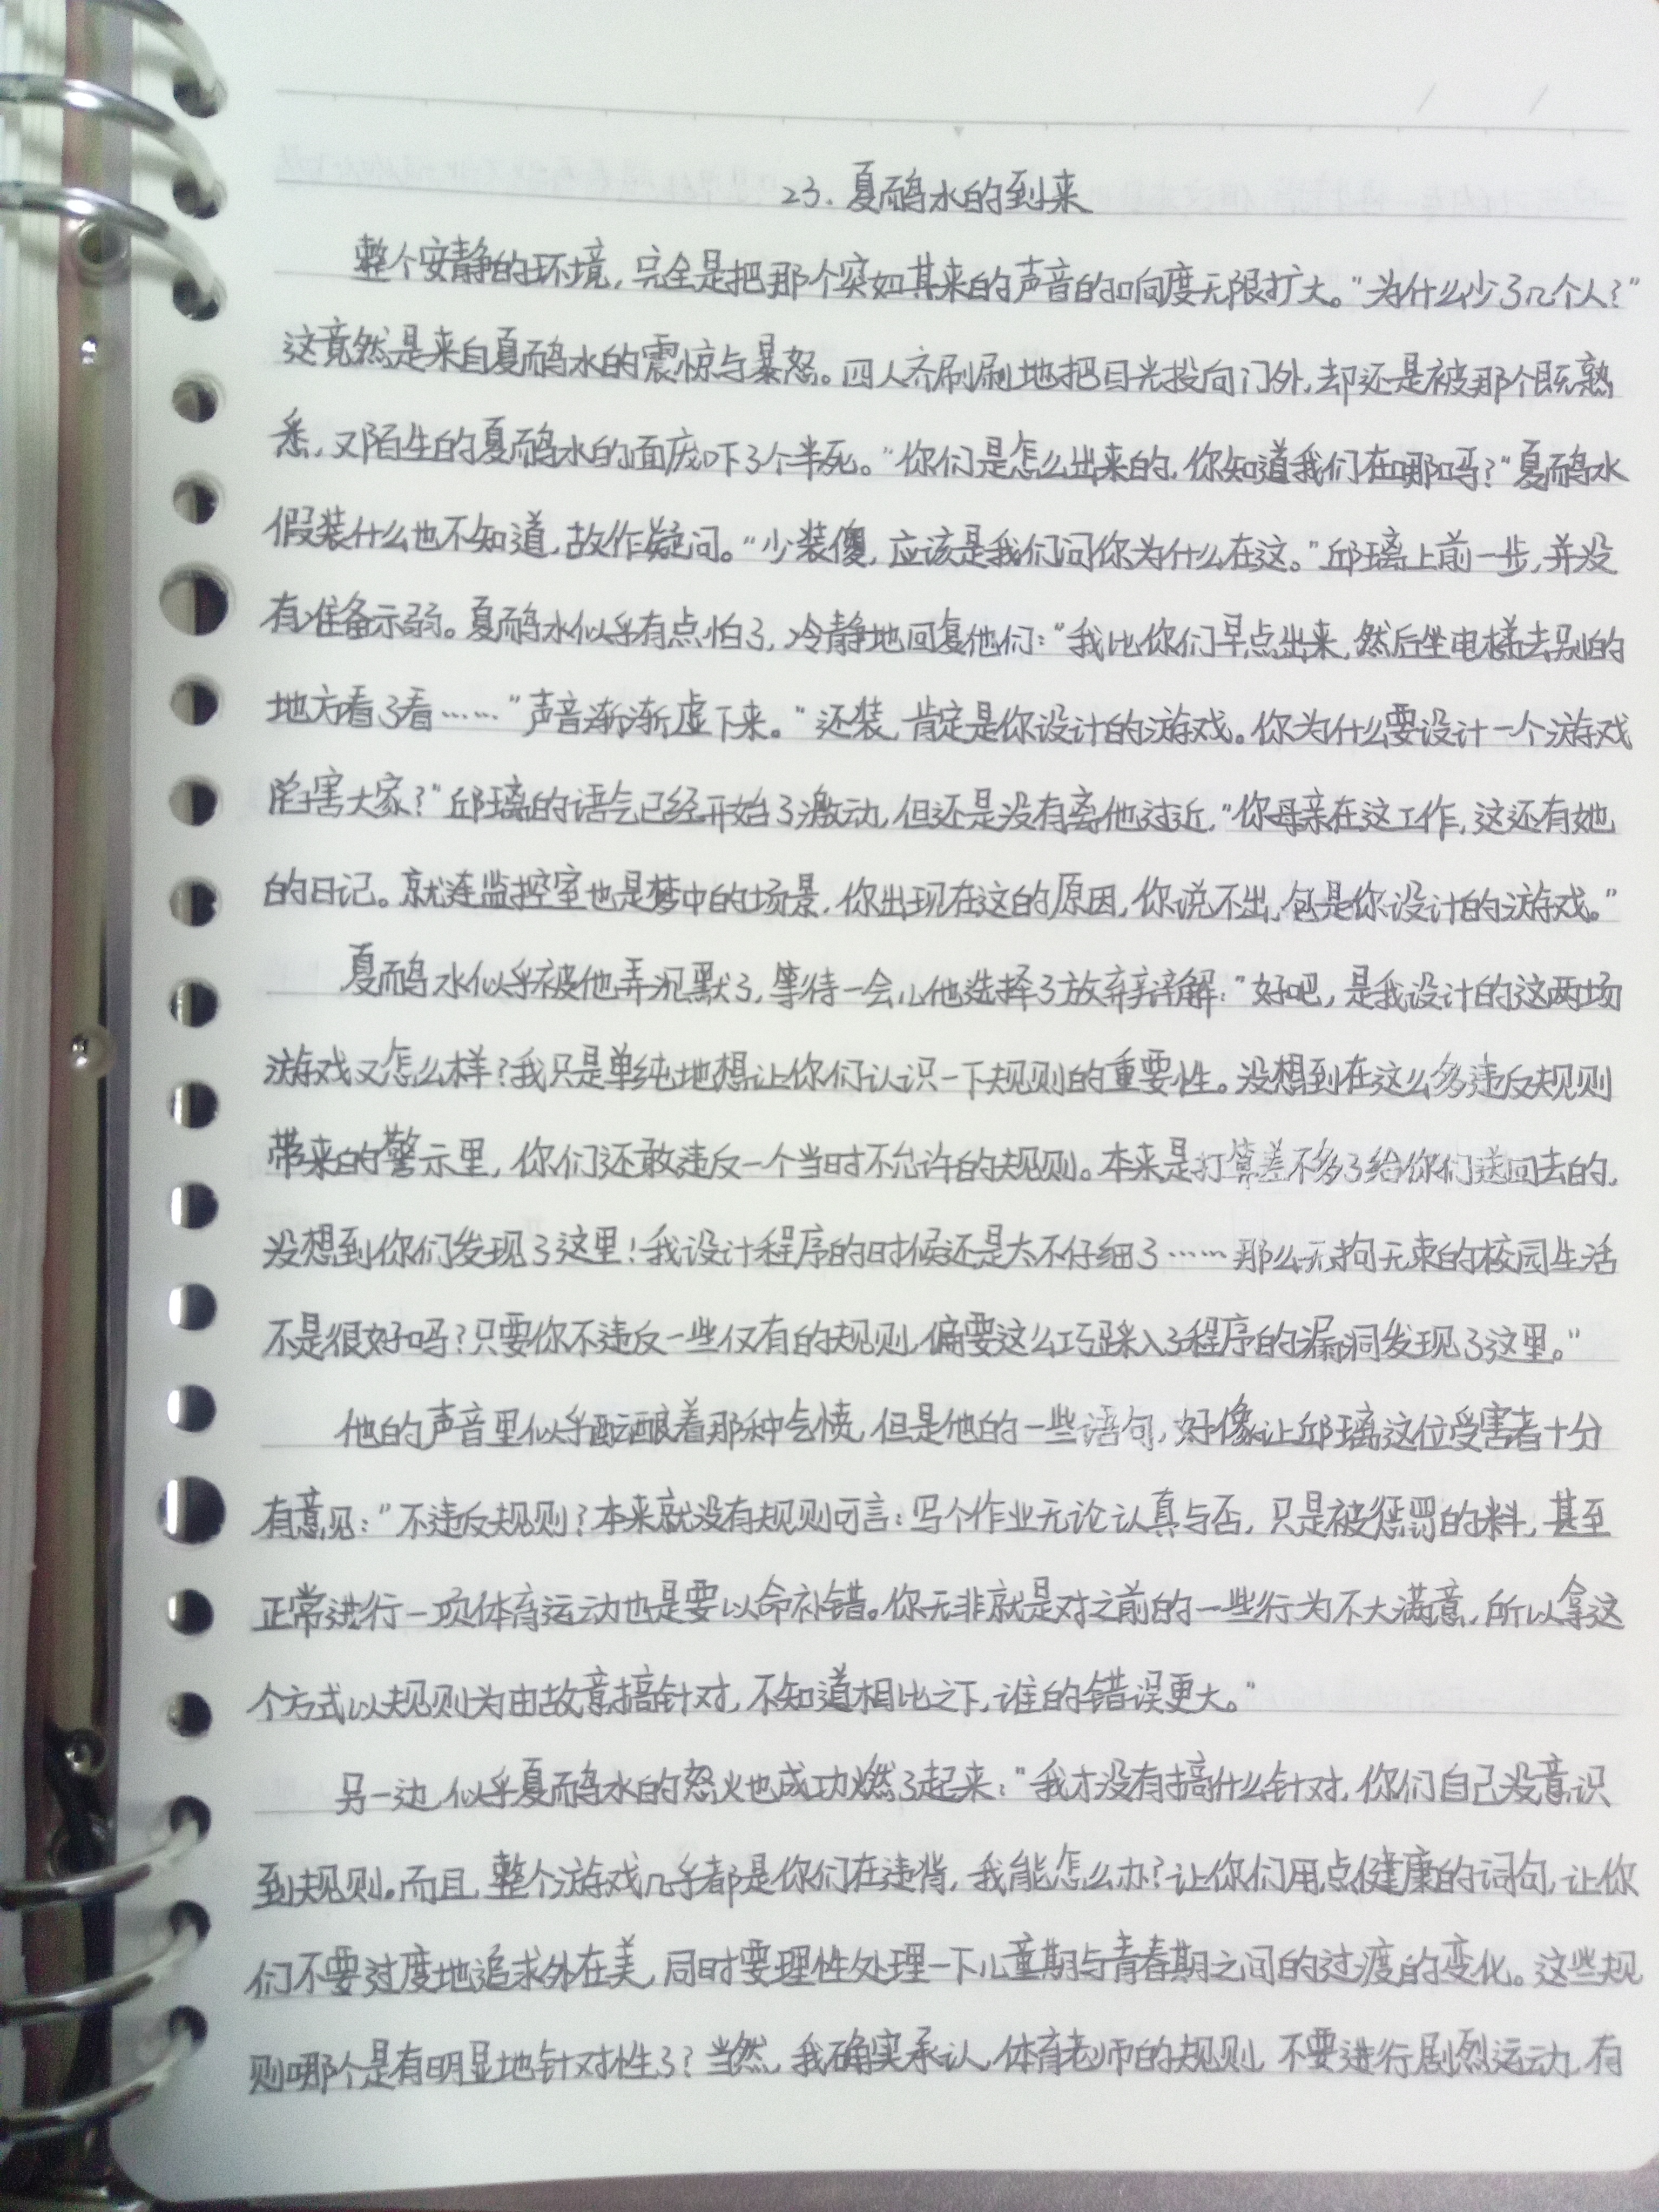 23. 夏鸸水的到来
整个安静的环境，完全是把那个突如其来的声音的响度无限扩大。“为什么少了几个人？”
这竟然是来自夏鸸水的震惊与暴怒。四人齐刷刷地把目光投向门外，却还是被那个既熟
悉，又陌生的夏鸸水的面庞吓了个半死。“你们是怎么出来的，你知道我们在哪吗？”夏鸸水
假装什么也不知道，故作疑问。“少装傻，应该是我们问你为什么在这。”邱璃上前一步，并没
有准备示弱。夏鸸水似乎有点怕了，冷静地回复他们：“我比你们早点出来，然后坐电梯去别的
地方看了看……”声音渐渐虚下来。“还装，肯定是你设计的游戏。你为什么要设计一个游戏
陷害大家？”邱璃的语气已经开始了激动，但还是没有离他过近，“你母亲在这工作，这还有她
的日记。就连监控室也是梦中的场景，你出现在这的原因，你说不出，包是你设计的游戏。”
夏鸸水似乎被他弄沉默了，等待一会儿他选择了放弃辩解：“好吧，是我设计的这两场
游戏又怎么样？我只是单纯地想让你们认识一下规则的重要性。没想到在这么多违反规则
带来的警示里，你们还敢违反一个当时不允许的规则。本来是打算差不多了给你们送回去的，
没想到你们发现了这里！我设计程序的时候还是太不仔细了……那么无拘无束的校园生活
不是很好吗？只要你不违反一些仅有的规则，偏要这么巧踩入了程序的漏洞发现了这里。”
他的声音里似乎酝酿着那种气愤，但是他的一些语句，好像让邱璃这位受害者十分
有意见：“不违反规则？本来就没有规则可言：写个作业无论认真与否，只是被惩罚的料，甚至
正常进行一项体育运动也是要以命补错。你无非就是对之前的一些行为不大满意，所以拿这
个方式以规则为由故意搞针对，不知道相比之下，谁的错误更大。”
另一边，似乎夏鸸水的怒火也成功燃了起来：“我才没有搞什么针对，你们自己没意识
到规则。而且，整个游戏几乎都是你们在违背，我能怎么办？让你们用点健康的词句，让你
们不要过度地追求外在美，同时要理性处理一下儿童期与青春期之间的过渡的变化。这些规
则哪个是有明显地针对性了？当然，我确实承认，体育老师的规则，不要进行剧烈运动，有